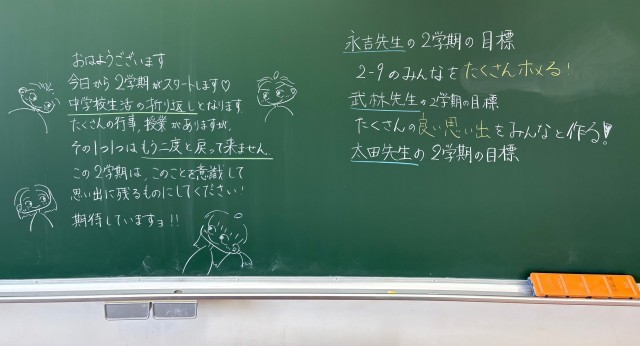 おはようございます
今日から2学期がスタートします♡
中学校生活の折り返しとなります
たくさんの行事、授業がありますが、
その1つ1つはもう二度と戻って来ません。
この2学期は、このことを意識して
思い出に残るものにしてください!
期待していますョ!!
永吉先生の2学期の目標
2-9のみんなをたくさんホメる!
武林先生の2学期の目標
たくさんの良い思い出をみんなと作る!
太田先生の2学期の目標